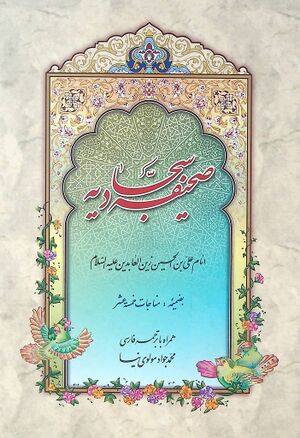 صحیفه سجادیه
امام علی بن الحسین زین العابدین علیه السلام
بضمیمه : مناجات خمسه عشر
همراه با ترجمه فارسی
محمد جواد مولوی نیا